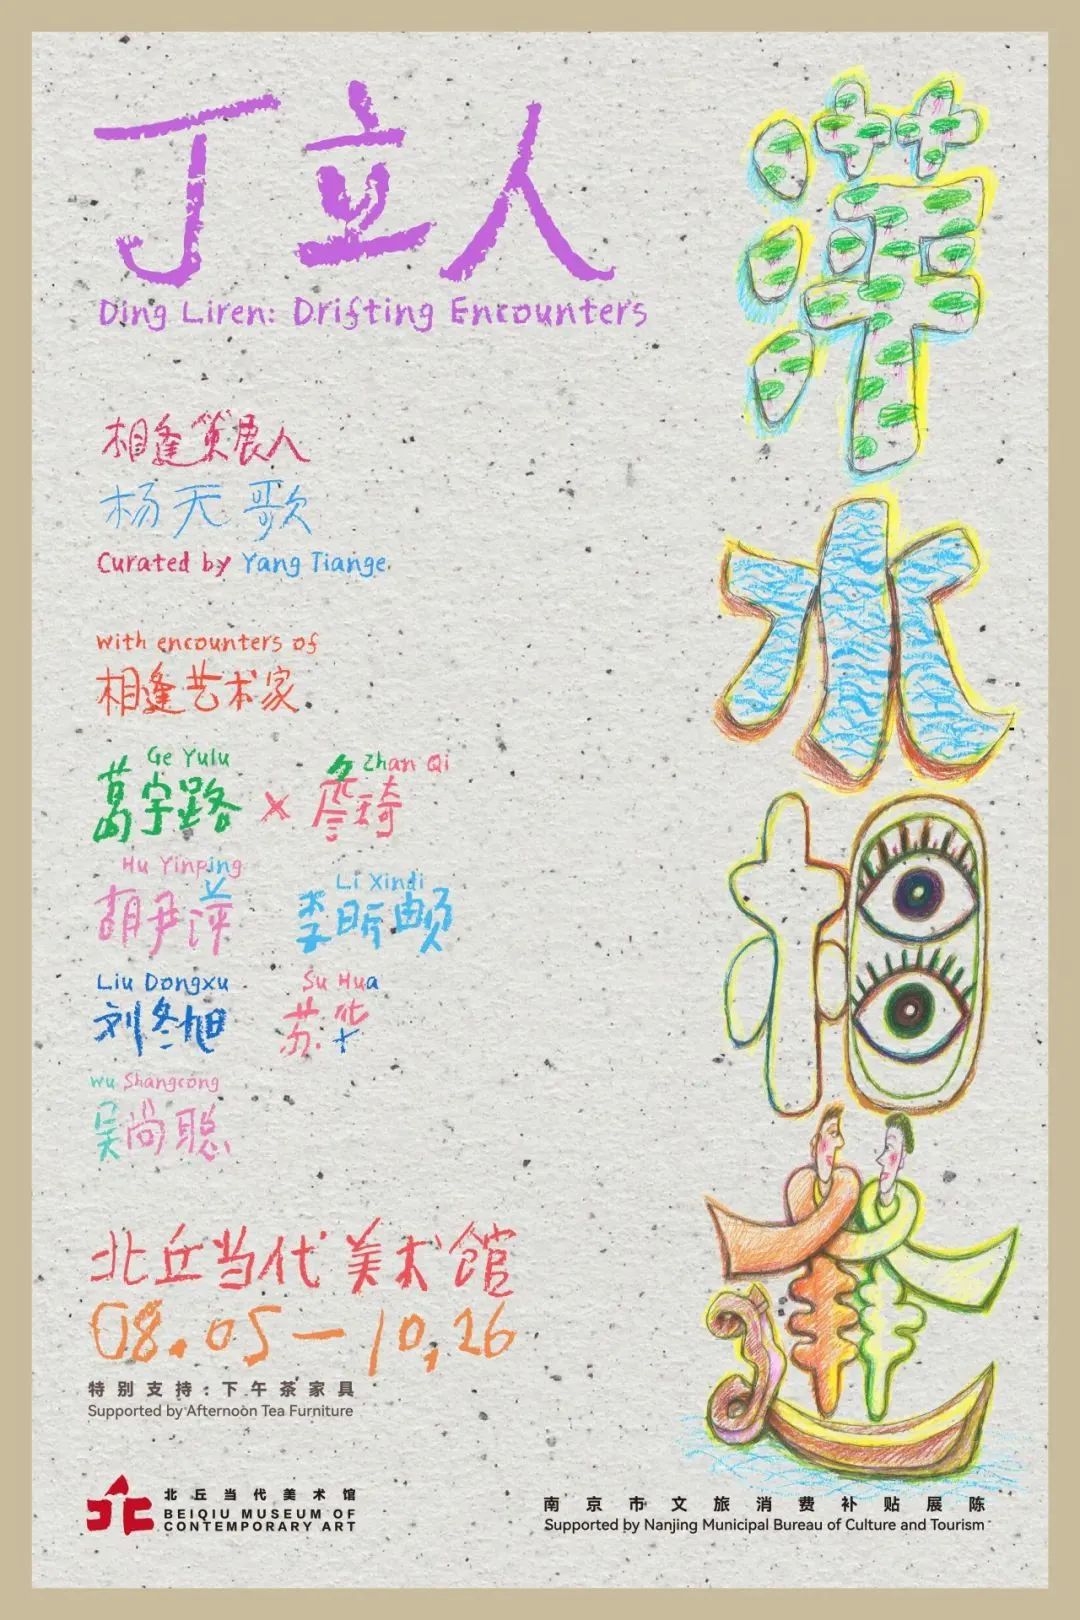 丁立人
Ding Liren: Drifting Encounters
萍水相逢
相逢策展人
杨天歌
Curated by Yang Tiange
with encounters of
相逢艺术家
Ge Yulu Zhan Qi
葛宇路 × 詹琦
Hu Yinping Li Xindi
胡尹萍 李昕𬱖
Liu Dongxu Su Hua
刘冬旭 苏华
Wu Shangcong
吴尚聪
北丘当代美术馆
08.05—10.26
特别支持:下午茶家具
Supported by Afternoon Tea Furniture
北丘当代美术馆
BEIQIU MUSEUM OF
CONTEMPORARY ART
南京市文旅消费补贴展陈
Supported by Nanjing Municipal Bureau of Culture and Tourism